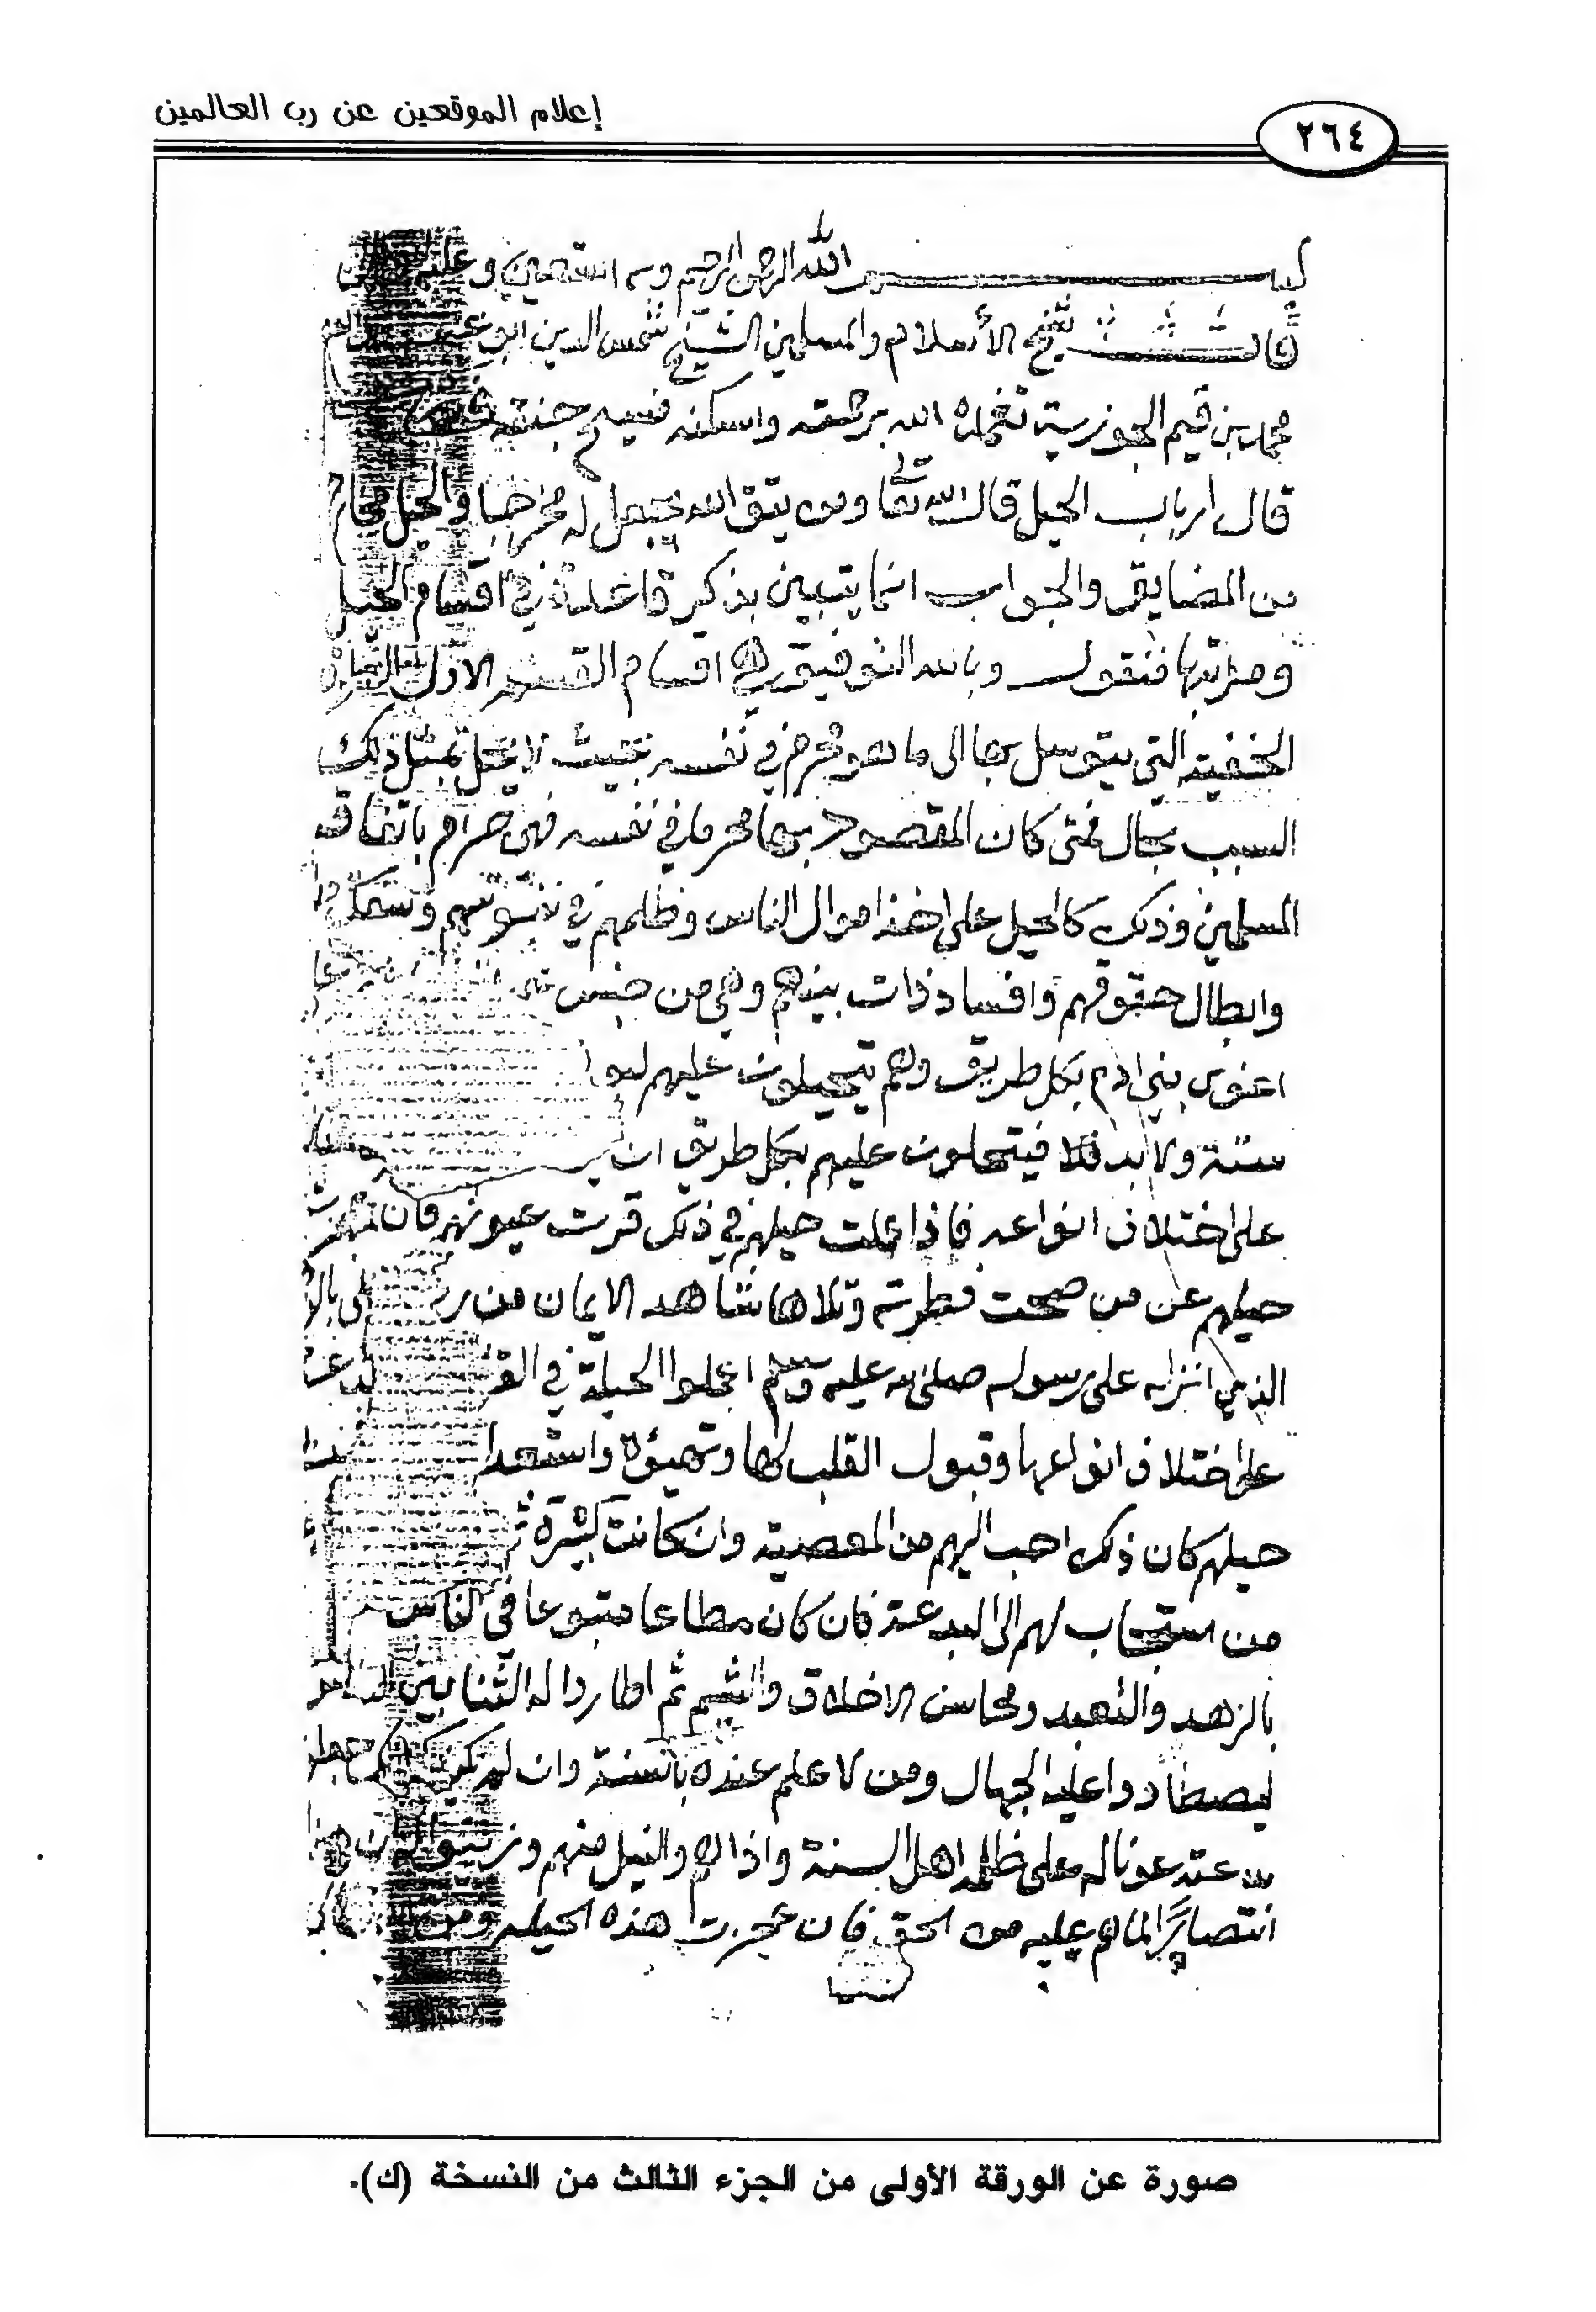 إعلام الموقعين عن رب العالمين
٢٦٤
بسم الله الرحمن الرحيم وبه استعين
قال شيخ الاسلام والمسلمين الشيخ شمس الدين ابو
محمد بن قيم الجوزية تغمده الله برحمته واسكنه فسيح جنته
قال ارباب الحيل قال الله تعا ومن يتق الله يجعل له مخرجا والحيل مخارج
من المضايق والجواب انما يتبين بذكر قاعدة في اقسام الحيل
ومراتبها فنقول وبالله التوفيق هي اقسام القسم الاول الطرق
الخفية التي يتوسل بها الى ما هو محرم في نفسه بحيث لا يحل بمثل ذلك
السبب بحال فمتى كان المقصود بها محرما في نفسه فهي حرام باتفاق
المسلمين وذلك كالحيل على اخذ اموال الناس وظلمهم في نفوسهم وسفك
وابطال حقوقهم وافساد ذات بينهم وهي من جنس
اغوى بني ادم بكل طريق وهم يتحيلون عليهم ليو
ستة ولا بد فيتحيلون عليهم بكل طريق ان
على اختلاف انواعه فاذا عملت حيلهم في ذلك قرت عيونهم فان عجزت
حيلهم عن من صحت فطرته وتلاها شاهد الايمان من ر
الذي انزله على رسوله صلى الله عليه وسلم اعملوا الحيلة في
على اختلاف انواعها وقبول القلب لها وتهيؤه واستعدا
حيلهم كان ذلك احب اليهم من المعصية وان كانت كبيرة
من استجاب لهم الى البدعة فان كان مطاعا متبوعا في الناس
بالزهد والتعبد ومحاسن الاخلاق والشيم ثم اطاروا له الثنا بين
ليصطادوا عليه الجهال ومن لا علم عنده بالسنة وان لم يكن
بدعته عونا له على ظلمه اهل السنة واذاهم والنيل منهم
انتصارا لما هم عليه من الحق فان عجزت هذه الحيلة
صورة عن الورقة الأولى من الجزء الثالث من النسخة (ك).